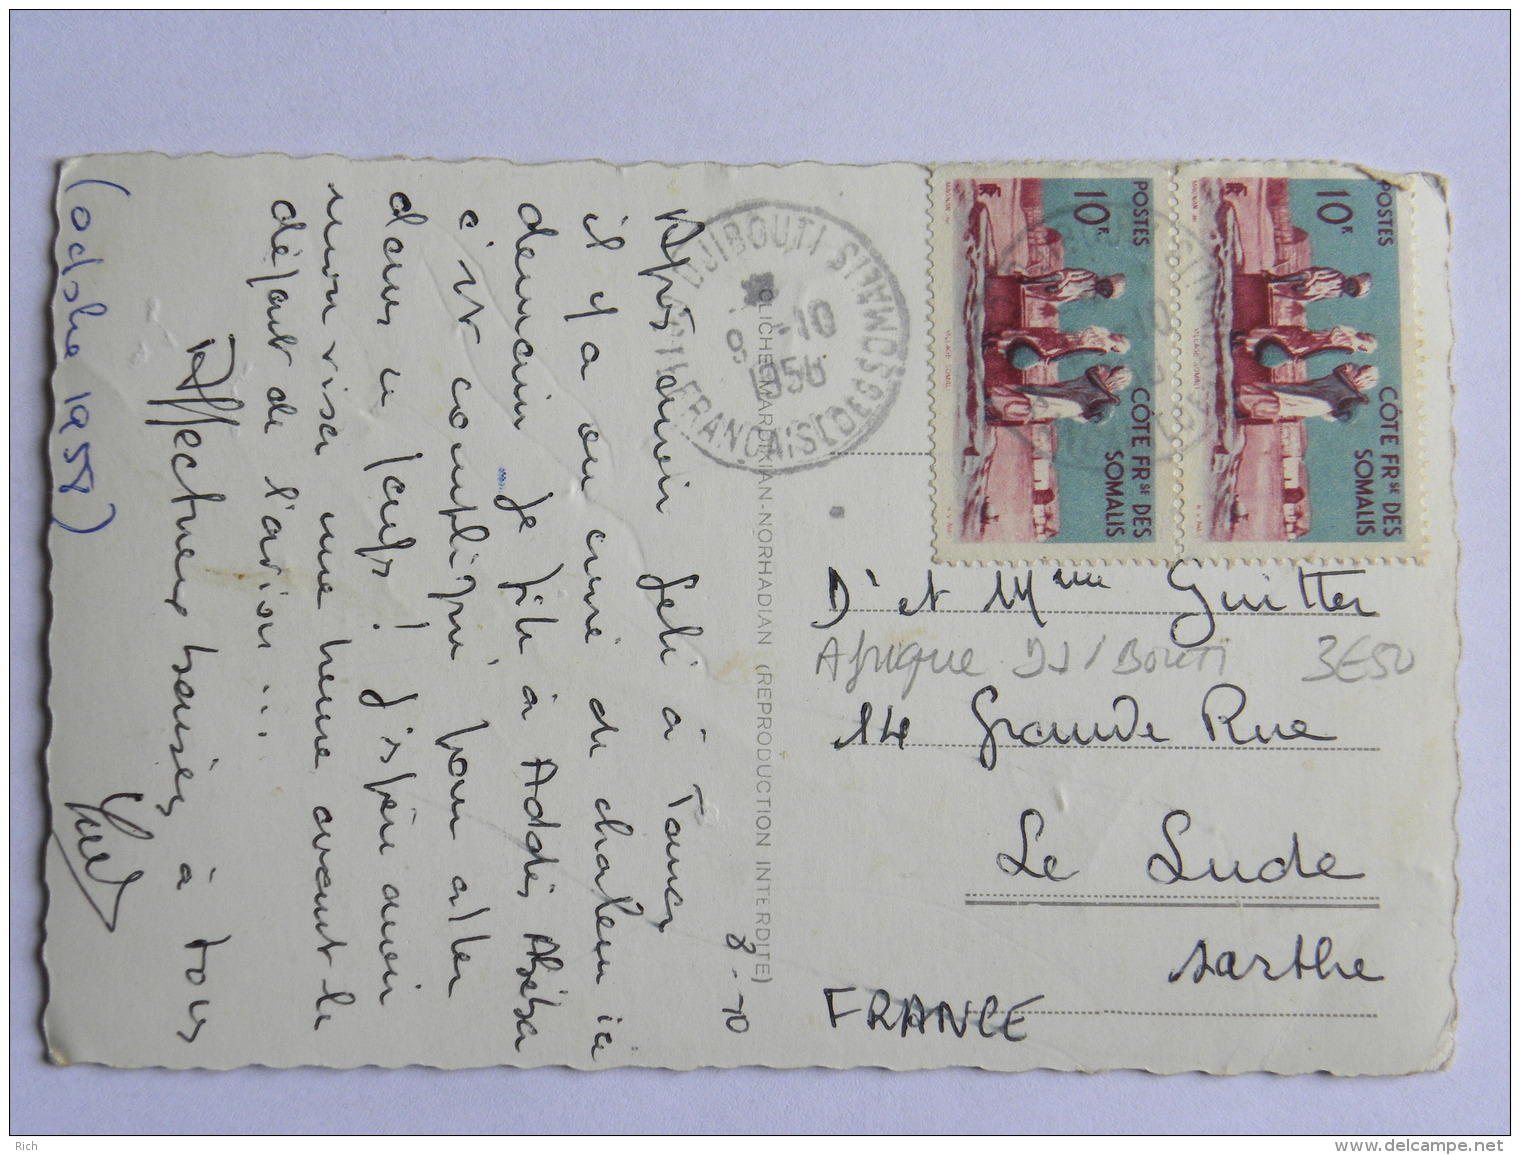 8-10
Après avoir geli à Tancy
il y a ou crevé de chaleur ici
demain je file à Addis Abéba
c'est compliqué pour aller
dans le pays! j'espère avoir
mon visa une heure avant le
départ de l'avion...
Affectueux baisers à tous
(octobre 1958)
CLICHE MARDIKIAN-NORHADIAN (REPRODUCTION INTERDITE)
DJIBOUTI
-10
1956
COTE FRANCAISE DES SOMALIS
POSTES
10F
RF
CÔTE FRSE DES
SOMALIS
VILLAGE SOMALI
POSTES
10F
RF
CÔTE FRSE DES
SOMALIS
VILLAGE SOMALI
Dr et Mme Guitter
Afrique DJIBOUTI 3E50
14 Grande Rue
Le Lude
Sarthe
FRANCE
Rich
www.delcampe.net